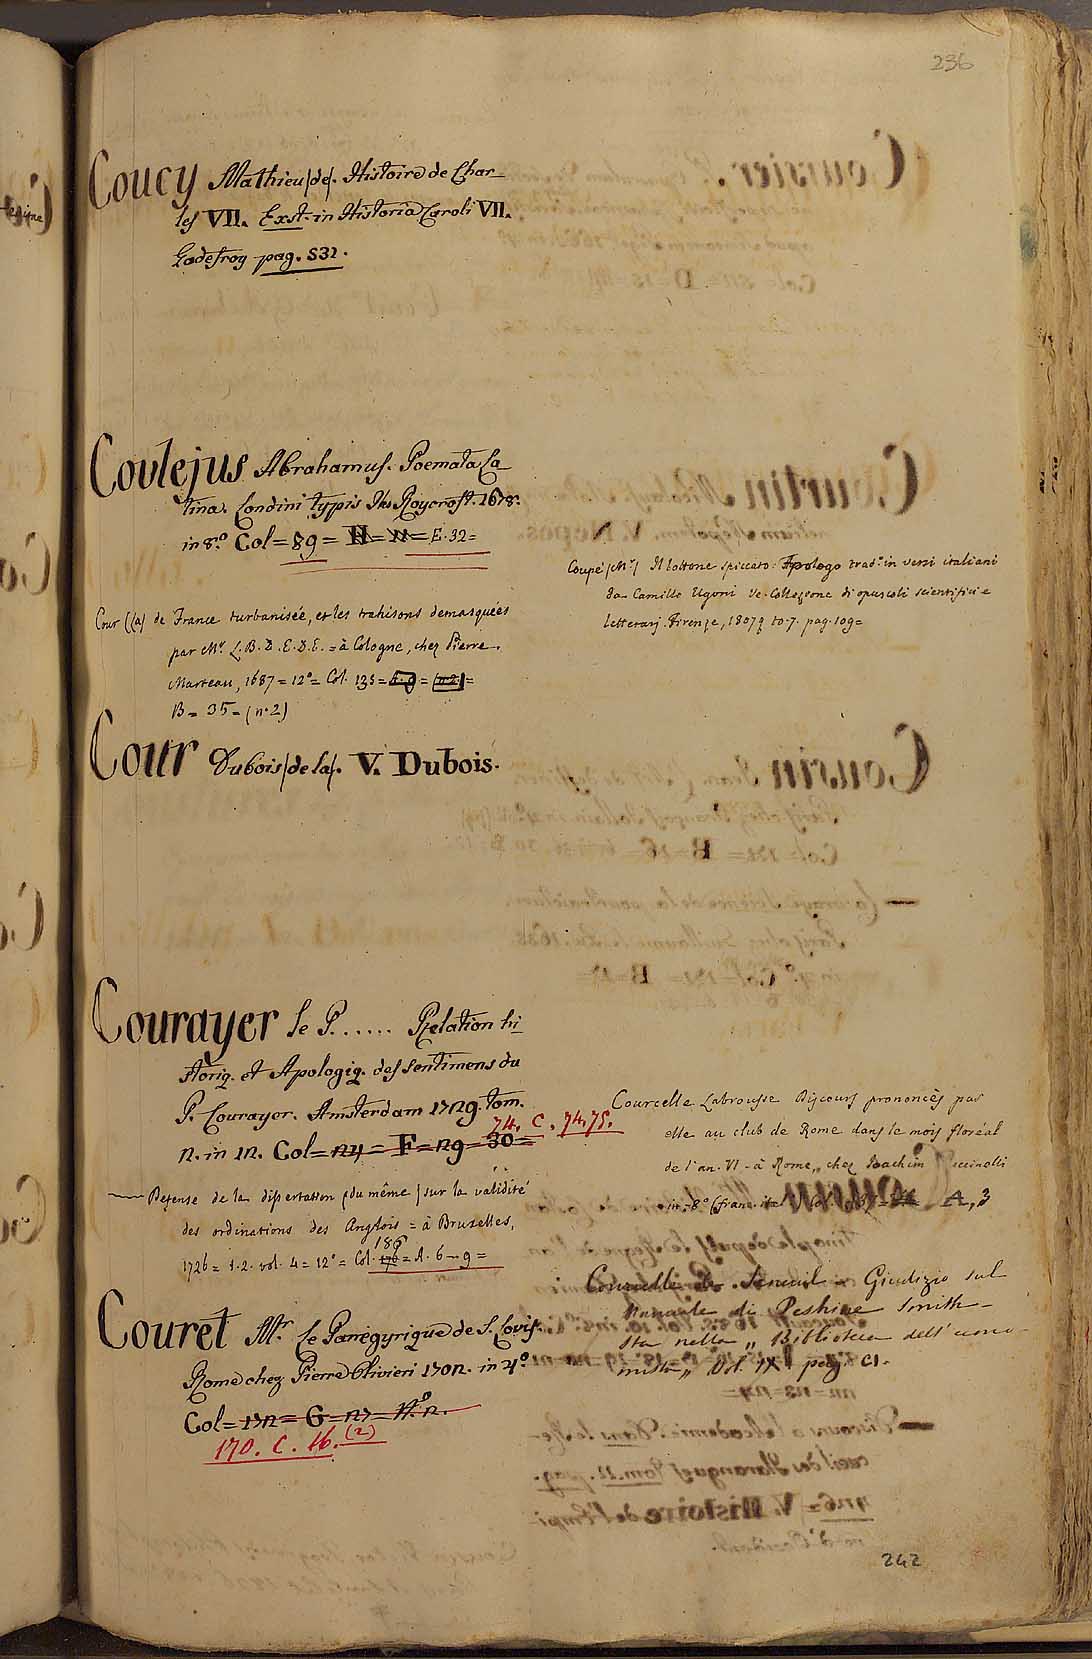 236
Coucy Mathieu /de/. Histoire de Char_
les VII. Exst. in Historia Caroli VII.
Godefroy pag. 532.
Coulejus Abrahamus. Poemata La_
tina. Londini typis Roycroft. 1678.
in 8.º Col = 89 = H = 11 = E. 32 =
Coupé (Mr) Il bottone spiccato: Apologo trad.º in versi italiani
da Camillo Ugoni Ve. Collezione di opuscoli scientifici e
letterarj. Firenze, 1807 to. 7. pag. 109 =
Cour ((la) de France turbanisée, et les trahisons demasquées
par Mr L. B. D. E. D. E. = à Cologne, chez Pierre
Marteau, 1687 = 12º = Col. 135 = = (n. 2) =
B = 35 = (n. 2)
Cour Dubois /de la/. V. Dubois.
Courayer le P...... Relation hi_
storiq. et Apologiq. des sentimens du
P. Courayer. Amsterdam 1729. tom.
2. in 12. Col = 24 = F = 29 = 30 =
74. C. 74.75.
Defense de la dissertation (du même) sur la validité
des ordinations des Anglois = à Bruxelles,
1726 = 1. 2. vol. 4 = 12º = Col. 186 = A. 6 - 9 =
Courcelle Labrousse Discours prononcès par
elle au club de Rome dans le mois floréal
de l'an. VI - à Rome, chez Joachim Puccinelli
in-8º (franc. ital. A, 3
Courcelle Seneuil - Giudizio sul
Manuale di Peshine Smith -
Sta nella „ Biblioteca dell' econo
mista „ Vol. IX pag. CI.
Couret Mr. Le Panegyrique de S. Lovis.
Rome chez Pierre Olivieri 1702. in 4.º
Col = 172 = G = 27 = N.º 2.
170. C. 16. (2)
242